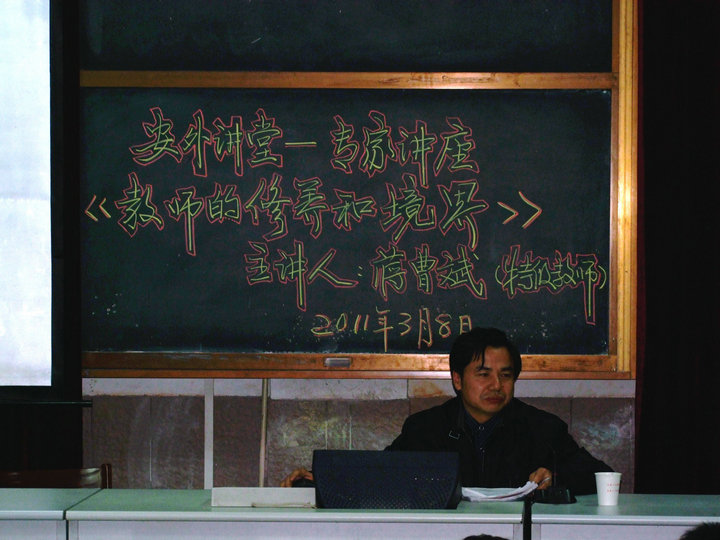 安外讲堂—专家讲座
《教师的修养和境界》
主讲人:蒋曹斌(特级教师)
2011年3月8日